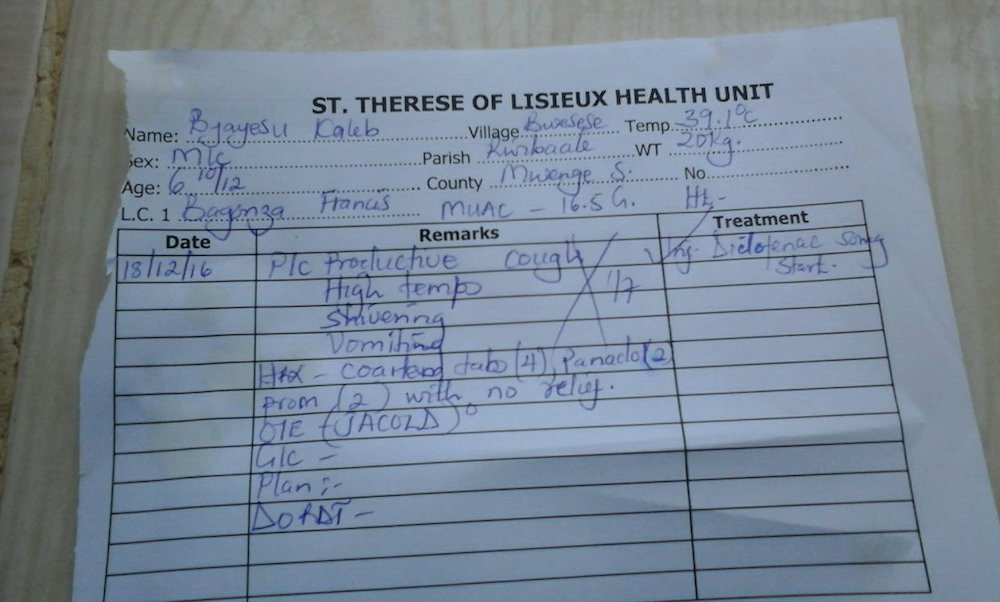 ST. THERESE OF LISIEUX HEALTH UNIT
Name: Byayesu Kaleb Village Bwesese Temp 39.1°C
Sex: M/c Parish WT 20kg.
Age: 6 10/12 County Mwenge S. No
L.C. 1 Bagonza Francis MUAC - 16.5 G. Ht -
Date Remarks Treatment
18/12/16 P/c Productive cough Inj. Diclofenac 50mg
High temps 1/7 Start.
Shivering
Vomiting
HRx - Coartem tabs (4), Panadol (2)
Prom (2) with no relief.
O/E - (JACOLD)°
G/C -
Plan :-
DORDT -